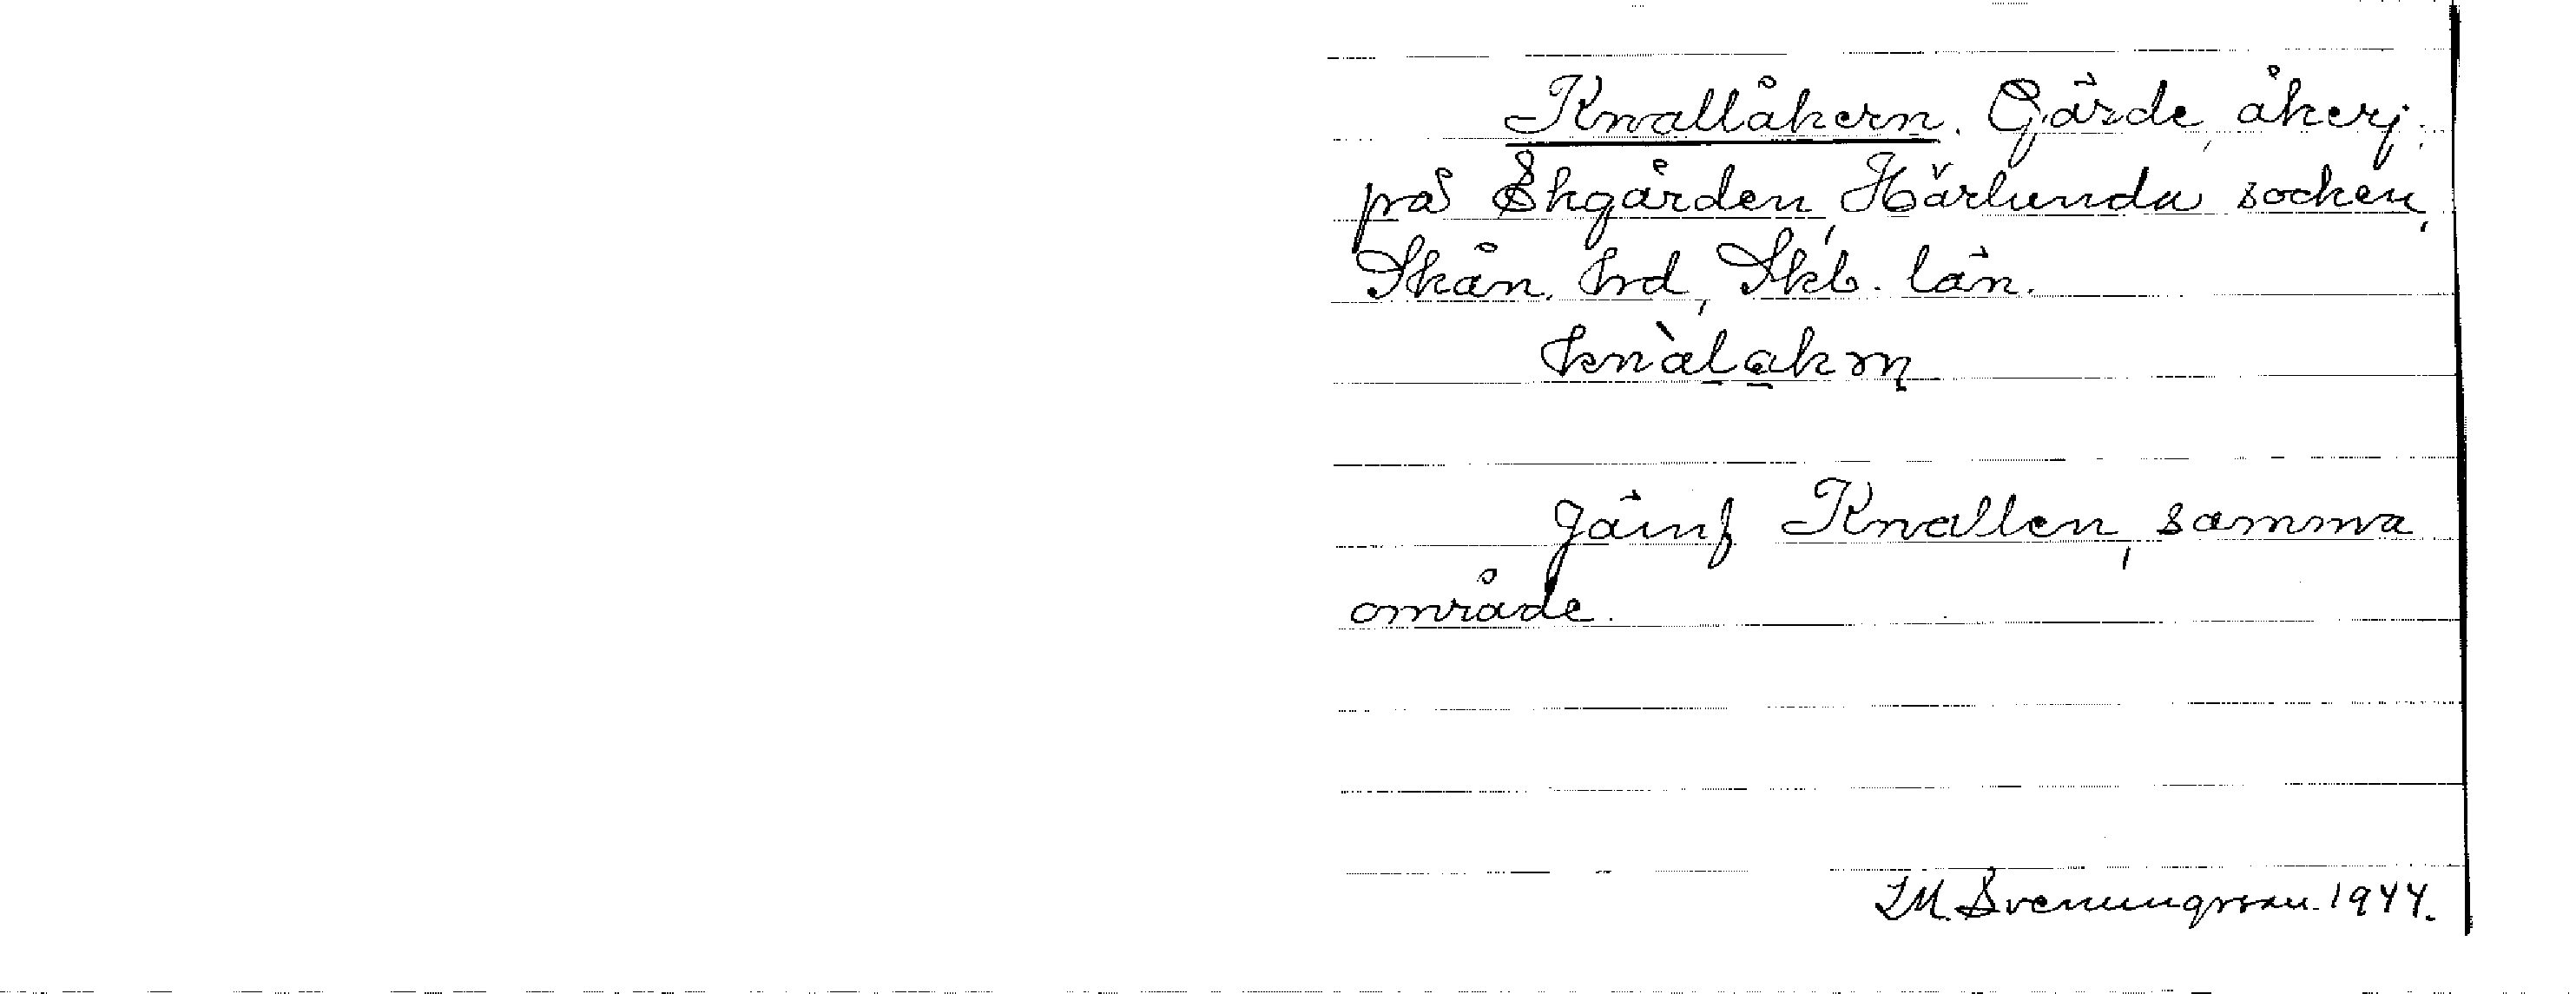 Knallåkern. Gärde, åkerj.
på Ekgården, Härlunda socken,
Skån. hrd, Skb. län.
knàlakrn̥
Jämf Knallen, samma
område.
I.M. Svenungsson. 1944.